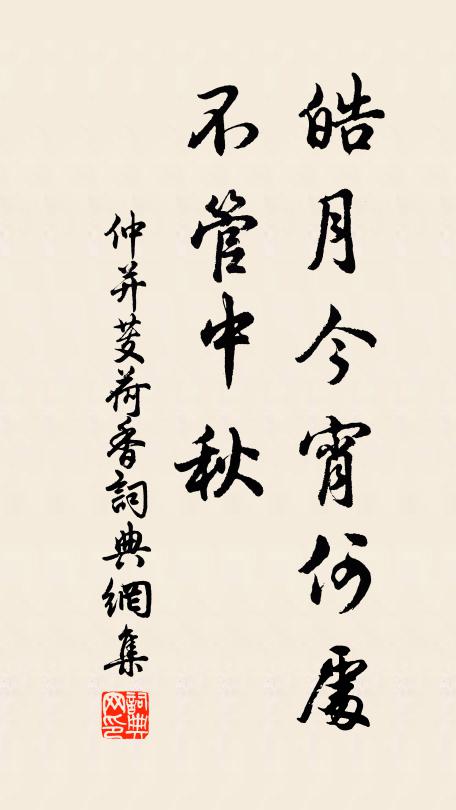 皓月今宵何處
不管中秋
仲并芰荷香詞典網集
詞典網印